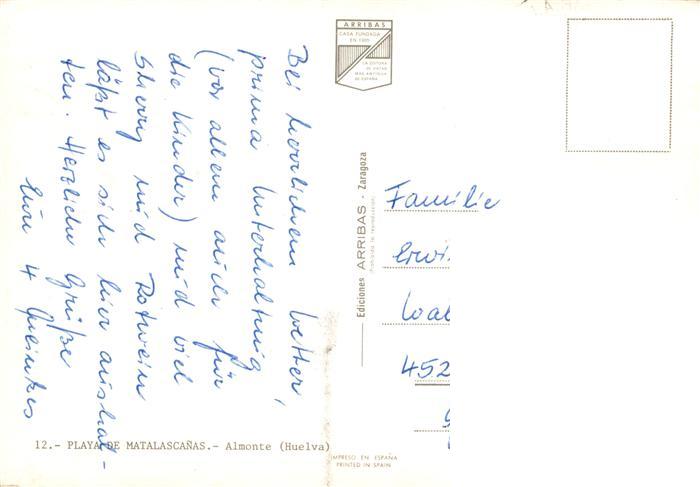 Bei herrlichem Wetter,
prima Unterhaltung
(vor allem auch für
die Kinder) und viel
Sherry und Rotwein
läßt es sich hier aushal-
ten. Herzliche Grüße
Eure 4
ARRIBAS
CASA FUNDADA
EN 1905
LA EDITORA
DE VISTAS
MAS ANTIGUA
DE ESPAÑA
Ediciones ARRIBAS - Zaragoza
(Prohibida la reproducción)
Familie
Erwi
452
12.- PLAYA DE MATALASCAÑAS.- Almonte (Huelva)
IMPRESO EN ESPAÑA
PRINTED IN SPAIN